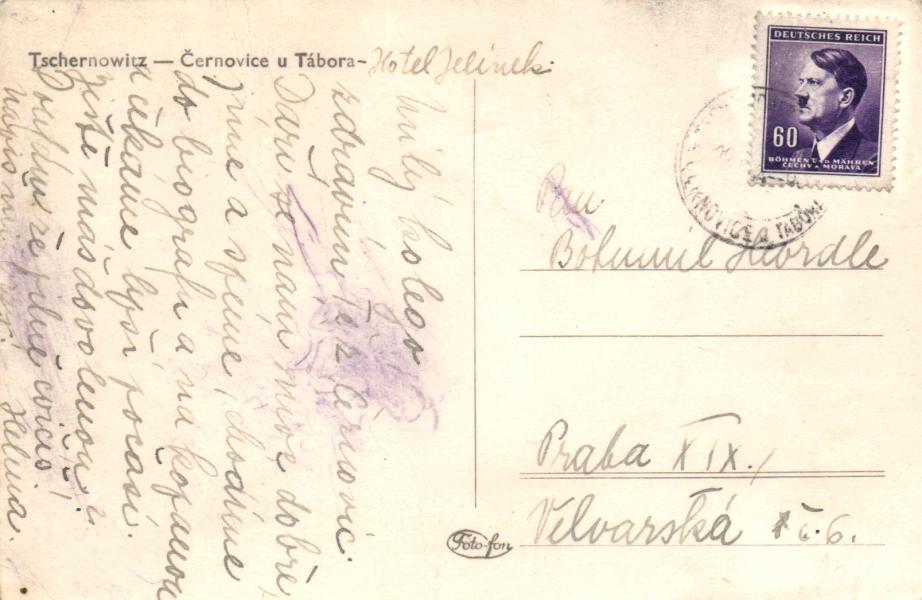 Tschernowitz — Černovice u Tábora - Hotel Jelínek.
Milý kolego!
zdravím Tě z Černovic.
Daří se nám moc dobře,
jíme a spíme, chodíme
do biografu a na kopanou
a čekáme lepší počasí.
Ještě máš dovolenou?
Doufám že pilně cvičíš!
Helena.
DEUTSCHES REICH
60
BÖHMEN UND MÄHREN
ČECHY A MORAVA
ČERNOVICE U TÁBORA
Pan
Bohumil Hordle
Praha XIX./
Velvarská č. 6.
Foto-fon